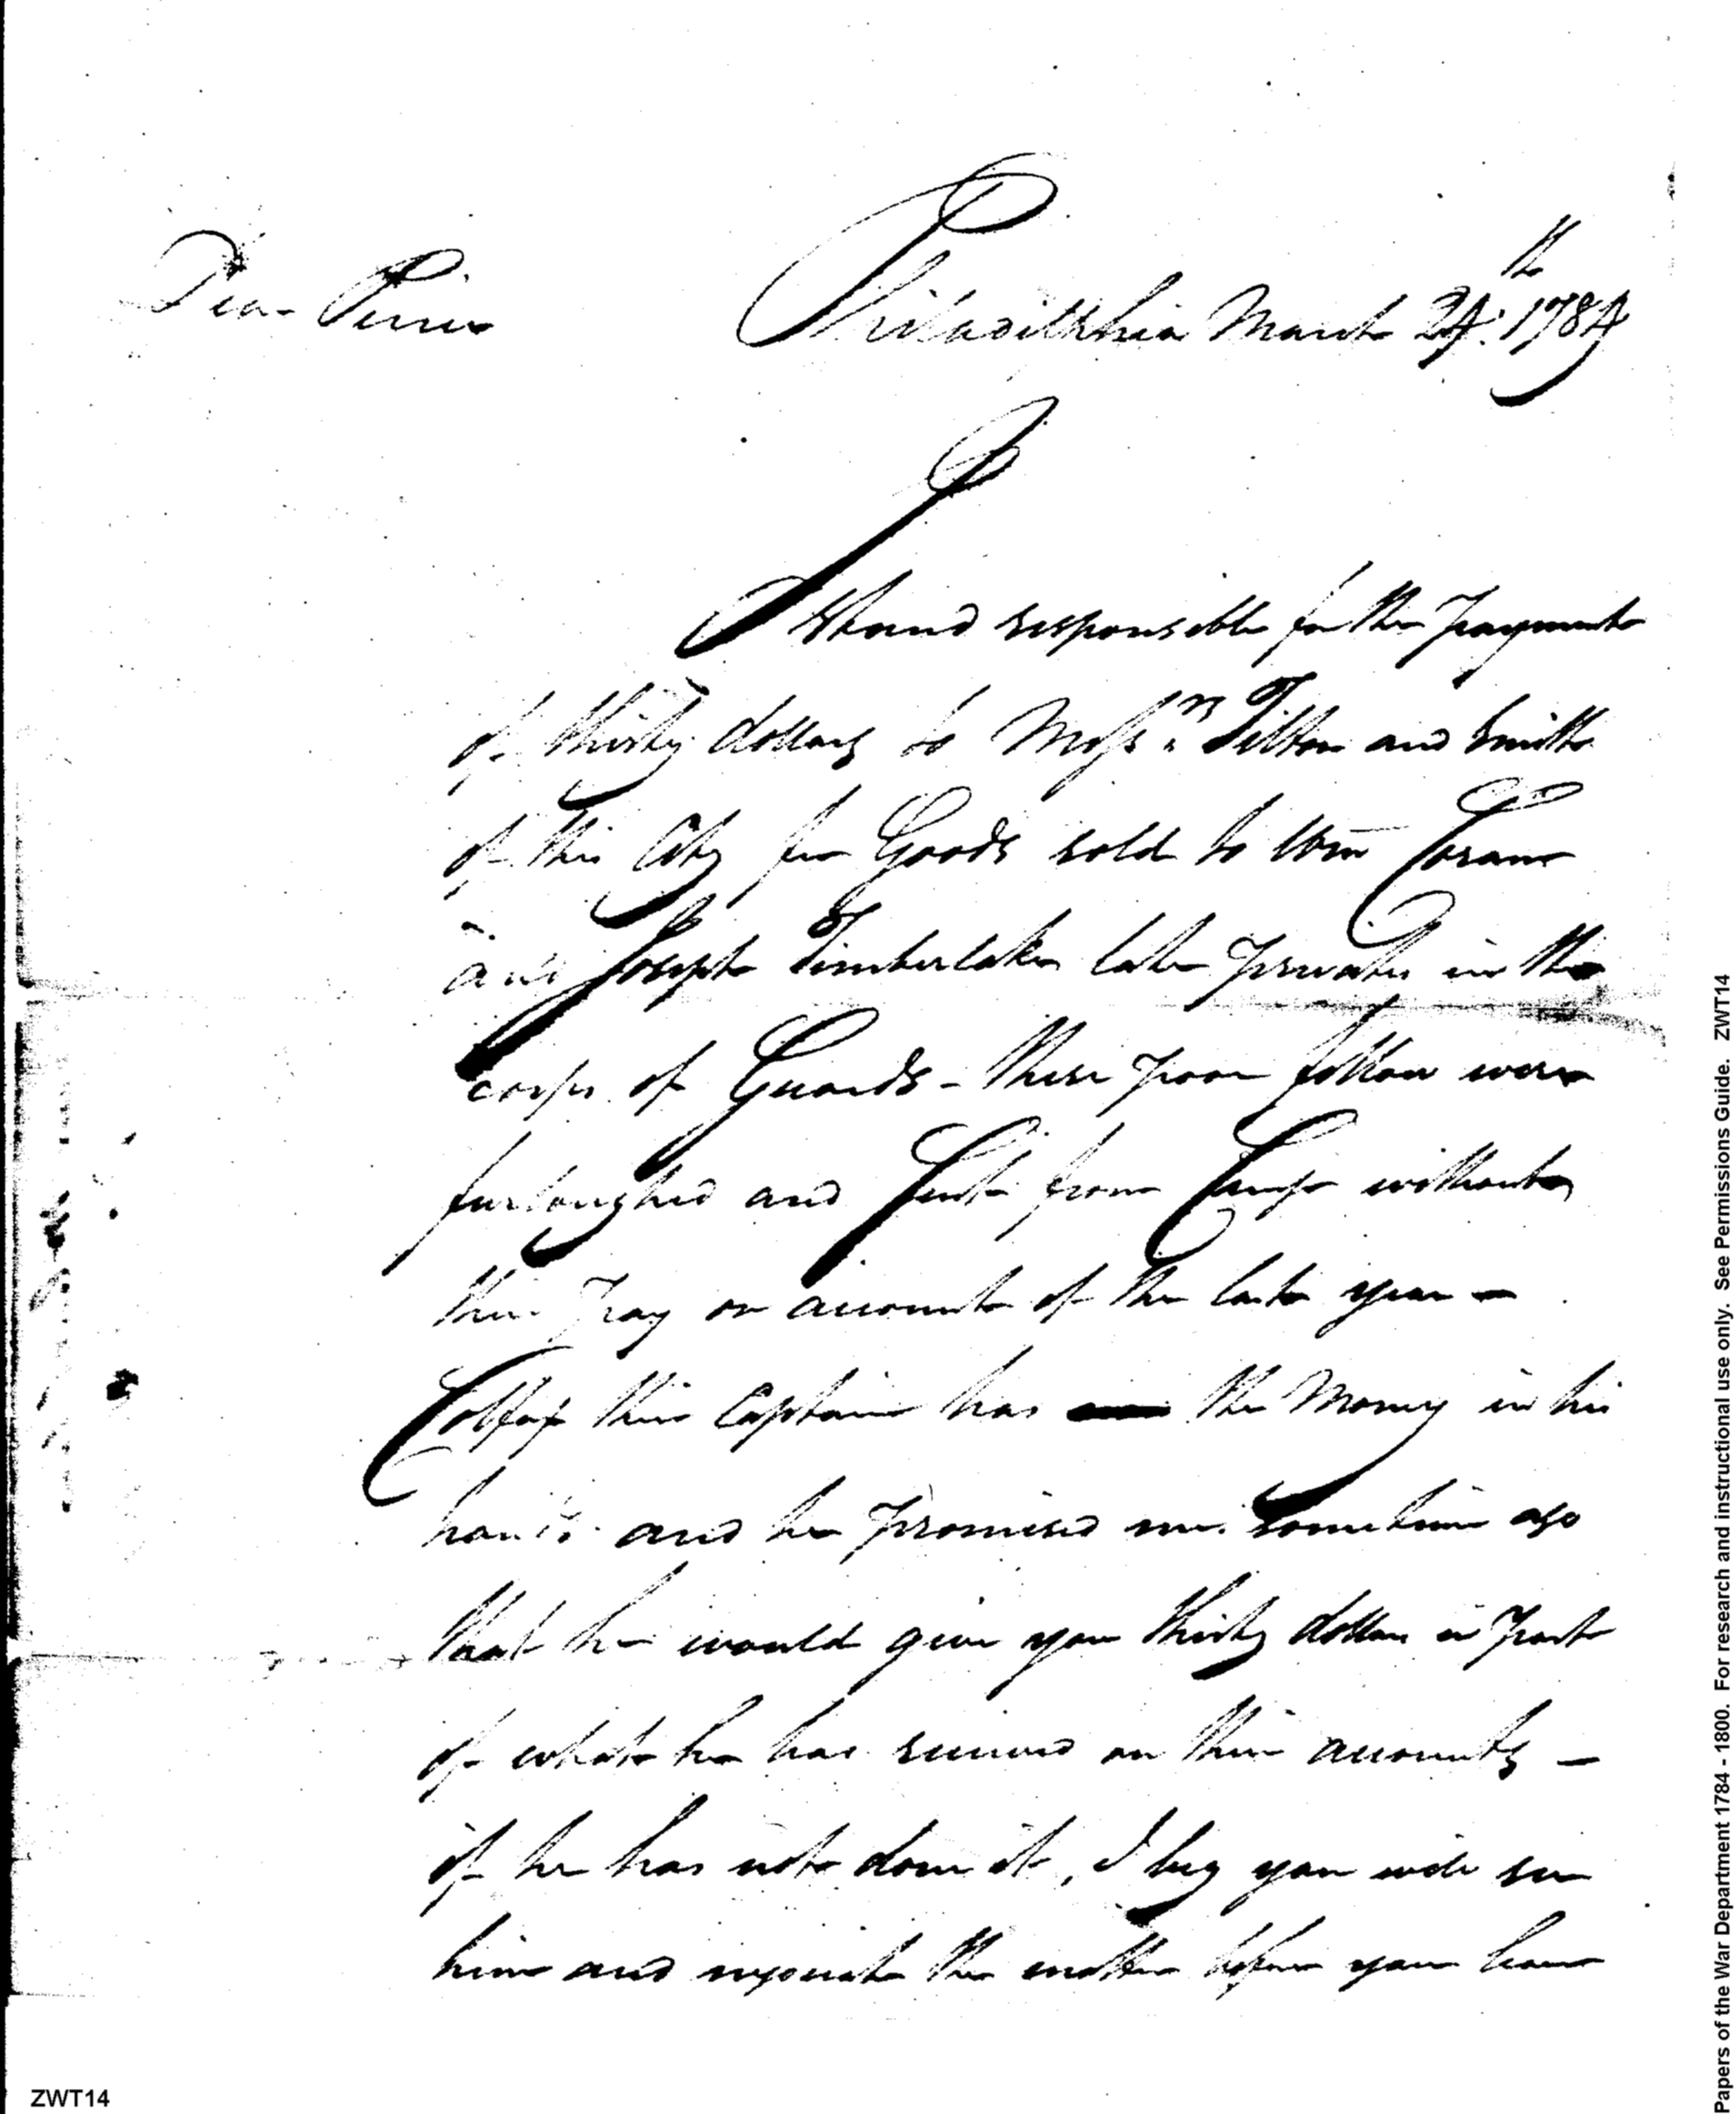 Dear Pierce
Philadelphia March 24th: 1784
I stand responsible for the payment
of thirty dollars to Messrs Tilton and Smith
of this City for Goods sold to Wm Coram
and Joseph Timberlake late privates in the
corps of Guards - these poor fellow were
furloughed and Sent from Camp without
their pay on account of the last year -
Colfax their Captain has the Money in his
hands and he promised me sometime ago
that he would give you thirty dollars in part
of what he has received on their accounts -
if he has not done it, I beg you will see
him and negociate the matter before you leave
ZWT14
Papers of the War Department 1784 - 1800. For research and instructional use only. See Permissions Guide. ZWT14